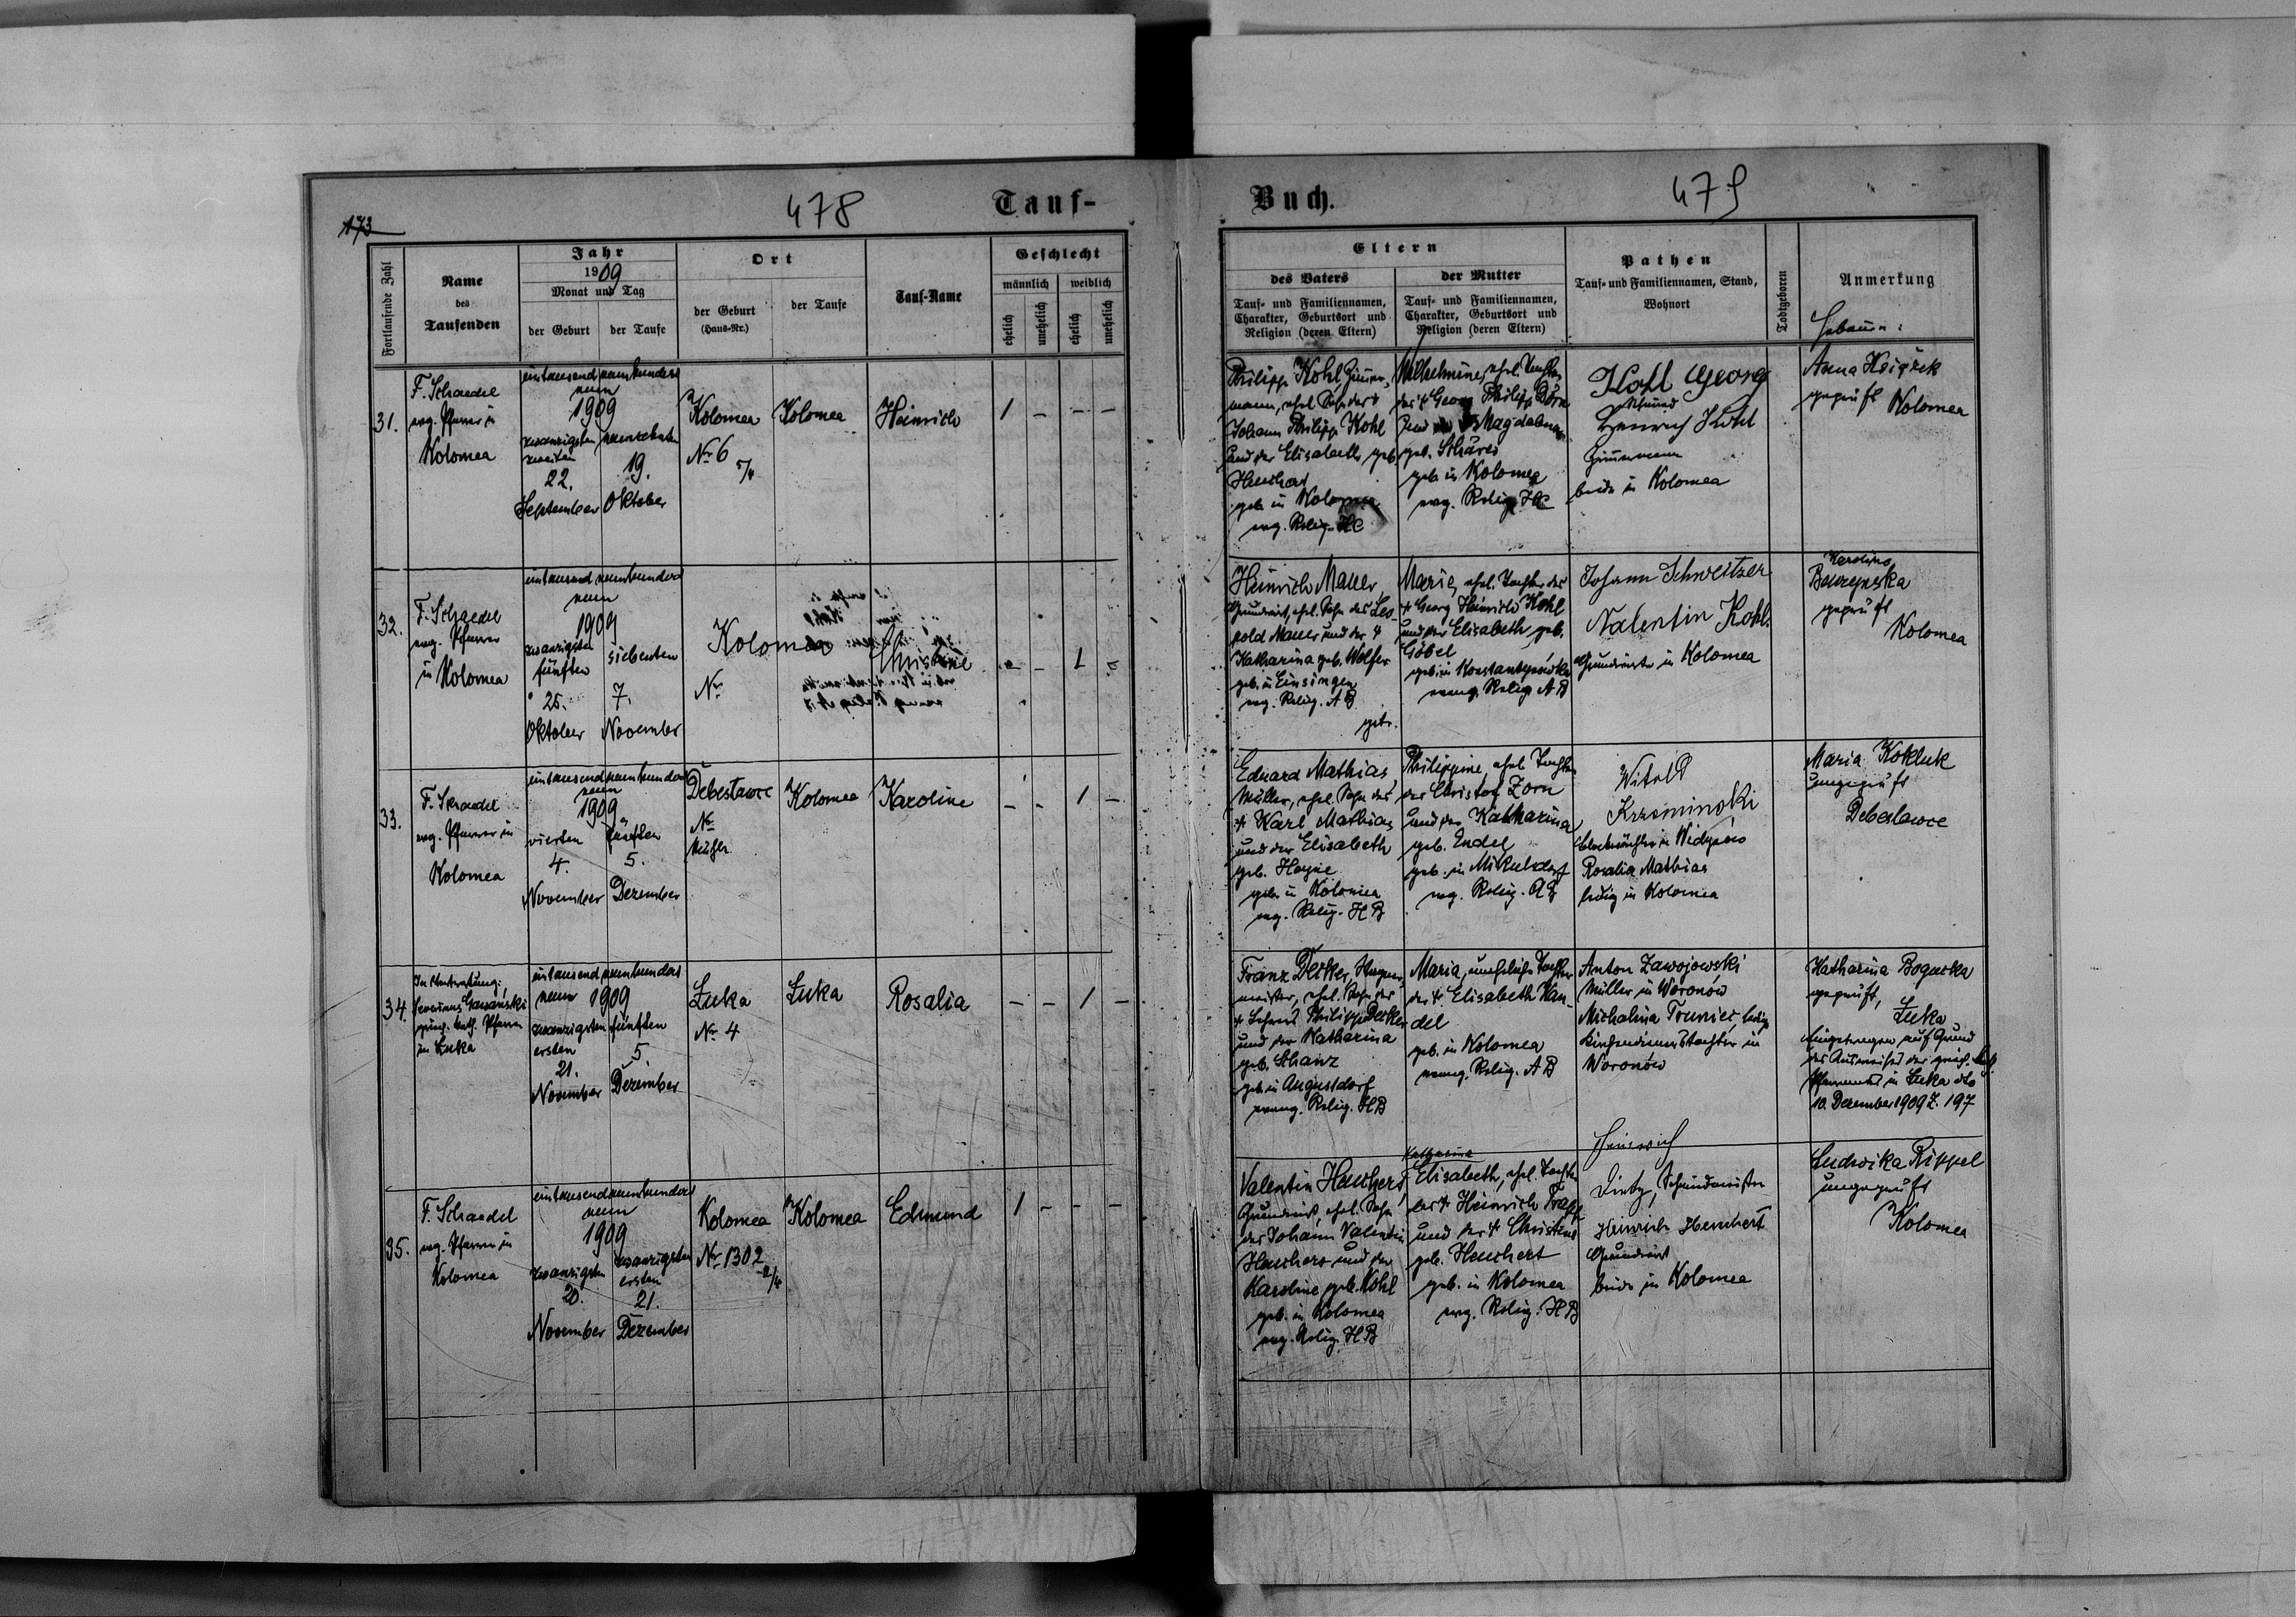 173
478
Tauf-
Fortlaufende Zahl
Name
des
Taufenden
Jahr
1909
Monat und Tag
der Geburt
der Taufe
Ort
der Geburt
(Haus-Nr.)
der Taufe
Tauf-Name
Geschlecht
männlich
weiblich
ehelich
unehelich
ehelich
unehelich
31.
F. Schaedel
evg. Pfarrer in
Kolomea
eintausend neunhundert
neun
1909
zwanzigsten neunzehnten
zweiten
22. 19.
September Oktober
Kolomea
Nr 6 5/4
Kolomea
Heinrich
1 - - -
32.
F. Schaedel
evg. Pfarrer
in Kolomea
eintausend neunhundert
neun
1909
zwanzigsten siebenten
fünften
25. 7.
Oktober November
Kolomea
Nr
Christine
- - 1 -
33.
F. Schaedel
evg. Pfarrer in
Kolomea
eintausend neunhundert
neun
1909
vierten fünften
4. 5.
November Dezember
Debeslawce
Nr
Mühle
Kolomea
Karoline
- - 1 -
34.
In Vertretung:
griech. kath. Pfarrer
in Łuka
eintausend neunhundert
neun 1909
zwanzigsten fünften
ersten
21. 5.
November Dezember
Łuka
Nr 4
Łuka
Rosalia
- - 1 -
35.
F. Schaedel
evg. Pfarrer in
Kolomea
eintausend neunhundert
neun
1909
zwanzigsten zwanzigsten
ersten
20. 21.
November Dezember
Kolomea
Nr 1302 2/4
Kolomea
Edmund
1 - - -
Buch.
479
Eltern
des Vaters
Tauf- und Familiennamen,
Charakter, Geburtsort und
Religion (deren Eltern)
der Mutter
Tauf- und Familiennamen,
Charakter, Geburtsort und
Religion (deren Eltern)
Pathen
Tauf- und Familiennamen, Stand,
Wohnort
Todtgeboren
Anmerkung
Hebamme:
Philipp Kohl, Zimmer-
mann, ehel. Sohn des †
Johann Philipp Kohl
und der Elisabeth geb.
geb. in Kolomea
evg. Relig. HC
Wilhelmine, ehel. Tochter
des † Georg Philipp Dörn
und Magdalena
geb. Schäres
geb. in Kolomea
evg. Relig. HC
Kohl Georg
Henrich Kohl
Zimmermann
beide in Kolomea
Anna Książek
geprüft Kolomea
Heinrich Mauer,
Grundwirt, ehel. Sohn des Leo-
pold Mauer und der †
Katharina geb. Wolfer
geb. in Einsingen
evg. Relig. AB
getr.
Maria, ehel. Tochter des
† Georg Heinrich Kohl
und der Elisabeth, geb.
Göbel
geb. in Konstantynówka
evang. Relig. AB
Johann Schweitzer
Valentin Kohl.
Grundwirte in Kolomea
Karolina
geprüft
Kolomea
Eduard Mathias,
Müller, ehel. Sohn des
† Karl Mathias
und der Elisabeth
geb. Hayne
geb. in Kolomea
evg. Relig. HB
Philippine, ehel. Tochter
des Christof Zorn
und der Katharina
geb. Endel
geb. in Mikulsdorf
evg. Relig. AB
Witold
Krzeminski
Rosalia Mathias
ledig in Kolomea
Maria Kokluk
ungeprüft
Debeslawce
Franz Decker,
meister, ehel. Sohn des
† Lehrers Philipp Decker
und der Katharina
geb. Schanz
geb. in Augustdorf
evang. Relig. HB
Maria, uneheliche Tochter
der † Elisabeth Wan-
del
geb. in Kolomea
evang. Relig. AB
Anton Zawojowski
Müller in Woronów
Michalina Trunier, ledige
Kirchendienerstochter in
Woronów
Katharina Bogucka
geprüft,
Łuka
Eingetragen auf Grund
des Ausweises des griech. kath.
Pfarramts in Łuka dto
10. Dezember 1909 Z. 197
Valentin Hauchert,
Grundwirt, ehel. Sohn
des Johann Valentin
und der
Karoline geb. Kohl
geb. in Kolomea
evg. Relig. HB
Katharina
Elisabeth, ehel. Tochter
des † Heinrich Trapp
und der † Christine
geb. Heuchert
geb. in Kolomea
evg. Relig. HB
Heinrich
Dietz, Schmiedmeister
Heinrich Heuchert
Grundwirt
beide in Kolomea
Ludwika Rippel
ungeprüft
Kolomea